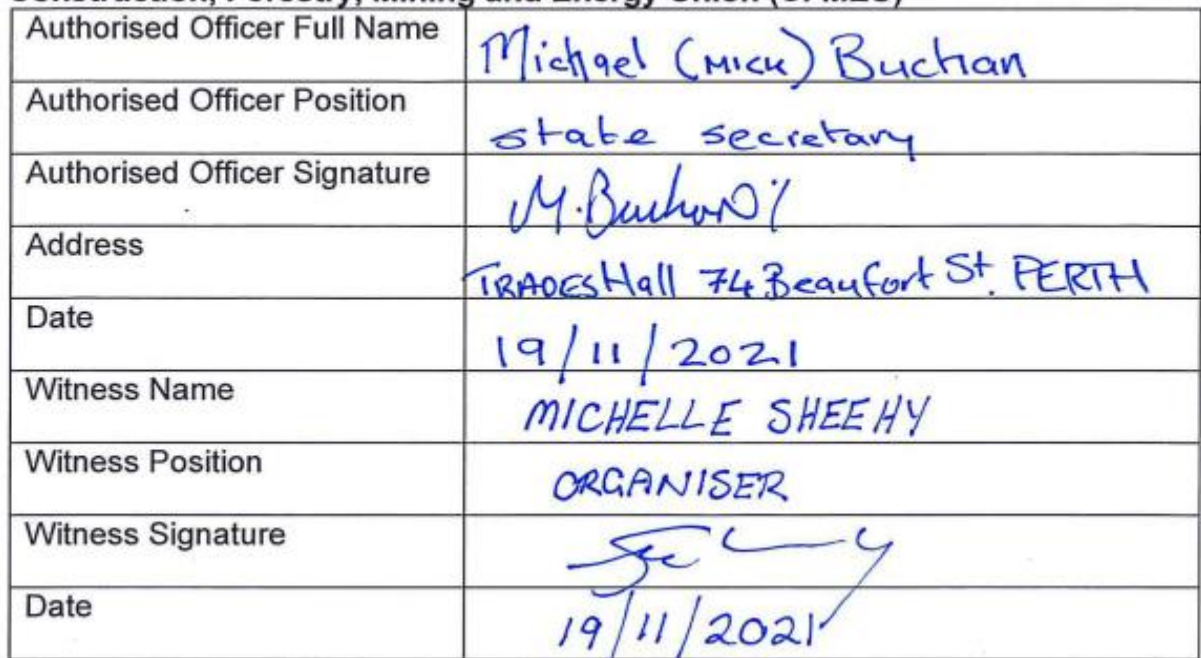 Construction, Forestry, Mining and Energy Union (CFMEU)
Authorised Officer Full Name Michael (MICK) Buchan
Authorised Officer Position state secretary
Authorised Officer Signature M.Buchan
Address TRADES Hall 74 Beaufort St. PERTH
Date 19/11/2021
Witness Name MICHELLE SHEEHY
Witness Position ORGANISER
Witness Signature
Date 19/11/2021